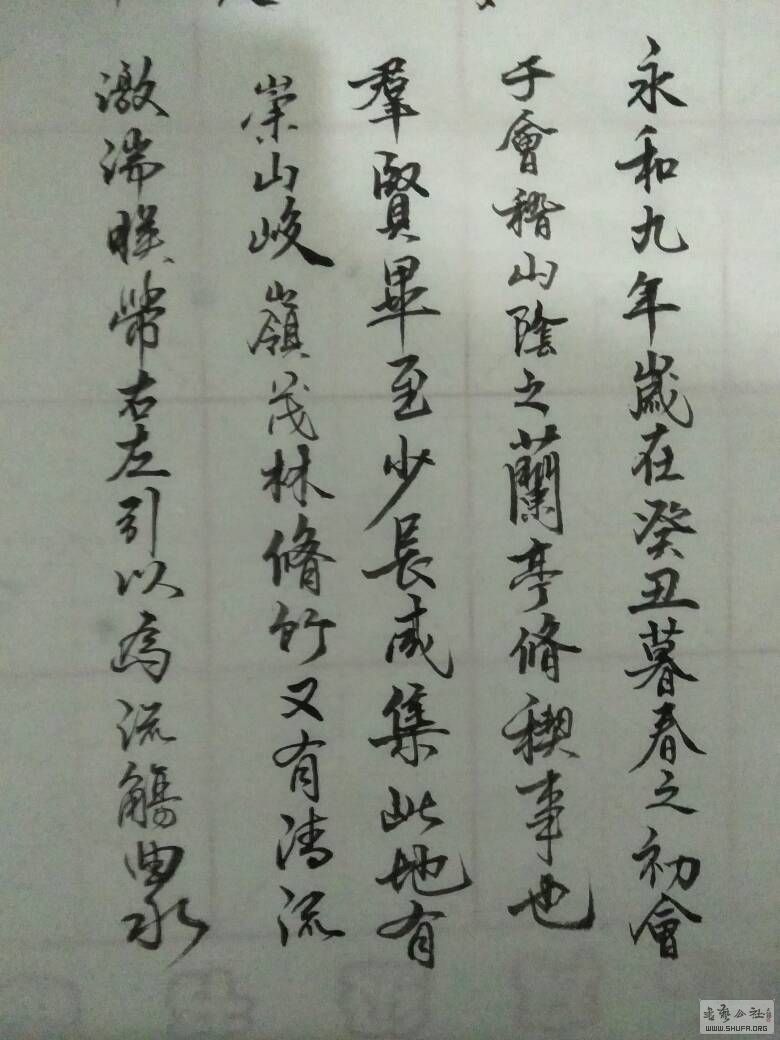 永和九年歲在癸丑暮春之初會
于會稽山陰之蘭亭脩稧事也
羣賢畢至少長咸集此地有
崇山峻嶺茂林脩竹又有清流
激湍暎帶右左引以為流觴曲水
書藝公社
WWW.SHUFA.ORG